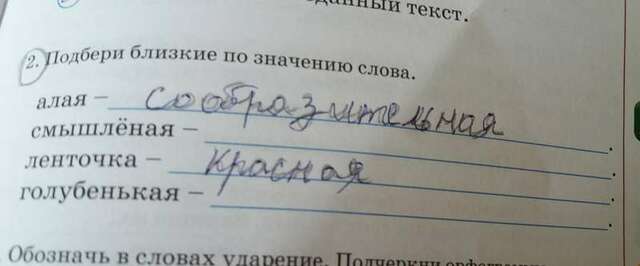 данный текст.
2. Подбери близкие по значению слова.
алая – сообразительная
смышлёная – .
ленточка – красная .
голубенькая – .
Обозначь в словах ударение. Подчеркни